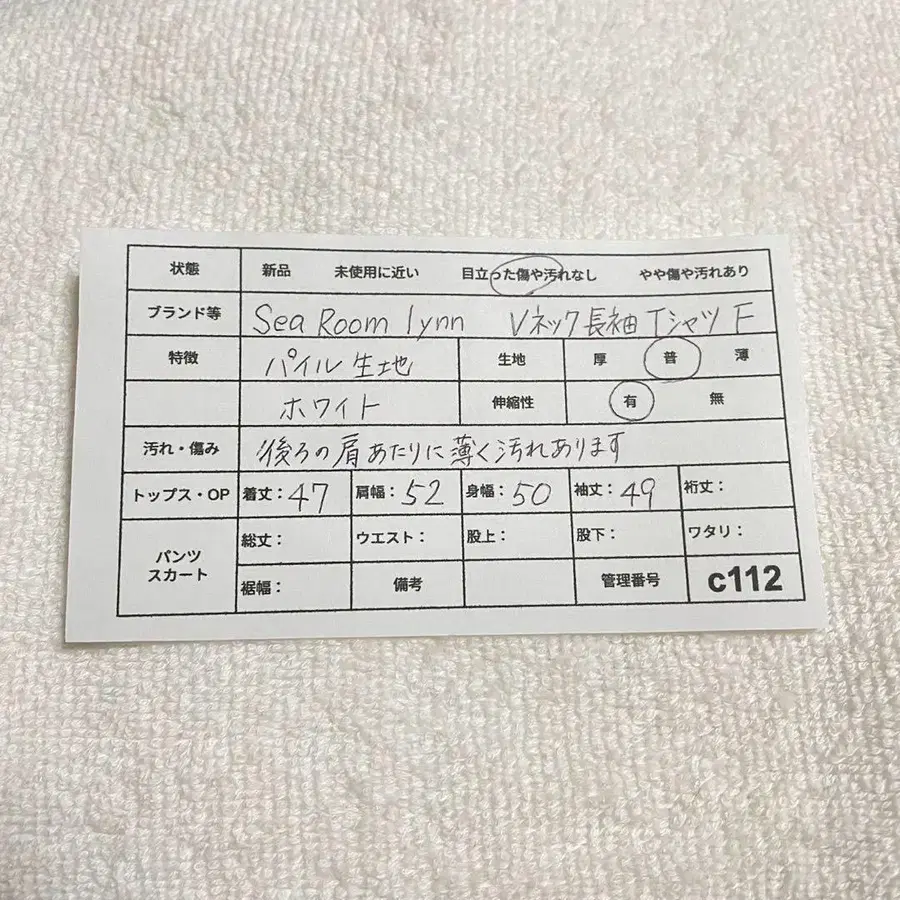 状態 新品 未使用に近い 目立った傷や汚れなし やや傷や汚れあり
ブランド等 Sea Room lynn Vネック長袖Tシャツ F
特徴 パイル生地 生地 厚 普 薄
ホワイト 伸縮性 有 無
汚れ・傷み 後ろの肩あたりに薄く汚れあります
トップス・OP 着丈：47 肩幅：52 身幅：50 袖丈：49 裄丈：
パンツ スカート 総丈： ウエスト： 股上： 股下： ワタリ：
裾幅： 備考 管理番号 c112